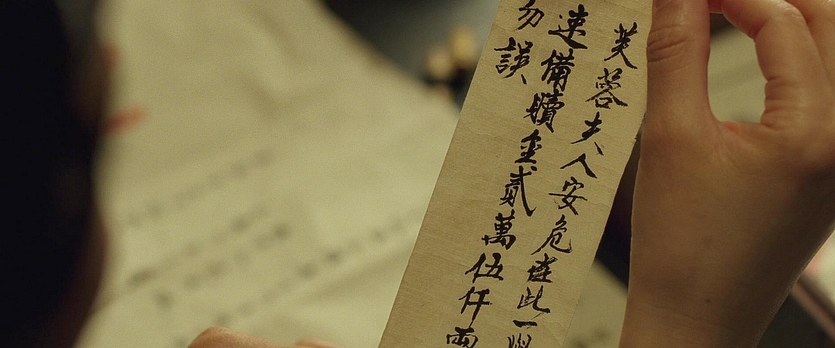 芙蓉夫人安危在此一
速備贖金貳萬伍仟兩
勿誤